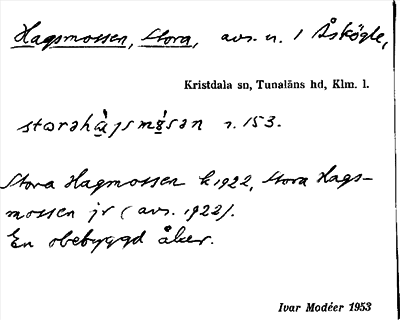 Hagsmossen, Stora, avs. u. 1 Åskögle,
Kristdala sn, Tunaläns hd, Klm. l.
r. 153.
Stora Hagmossen k 1922, Stora Hags-
mossen jr (avs. 1922).
En obebyggd åker.
Ivar Modéer 1953